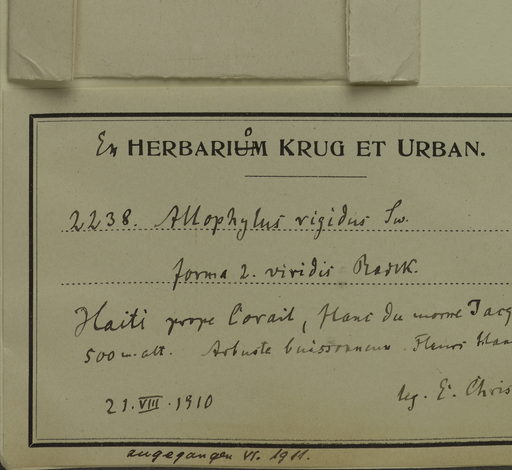 Ex HERBARIO KRUG ET URBAN.
2238. Allophylus rigidus Sw.
forma 2. viridis Radlk.
Haiti prope Corail, flanc du morne Jacq
500 m. alt. Arbuste buissonneux. Fleurs blan
21. VIII. 1910 leg. E. Chris
angegangen VI. 1911.